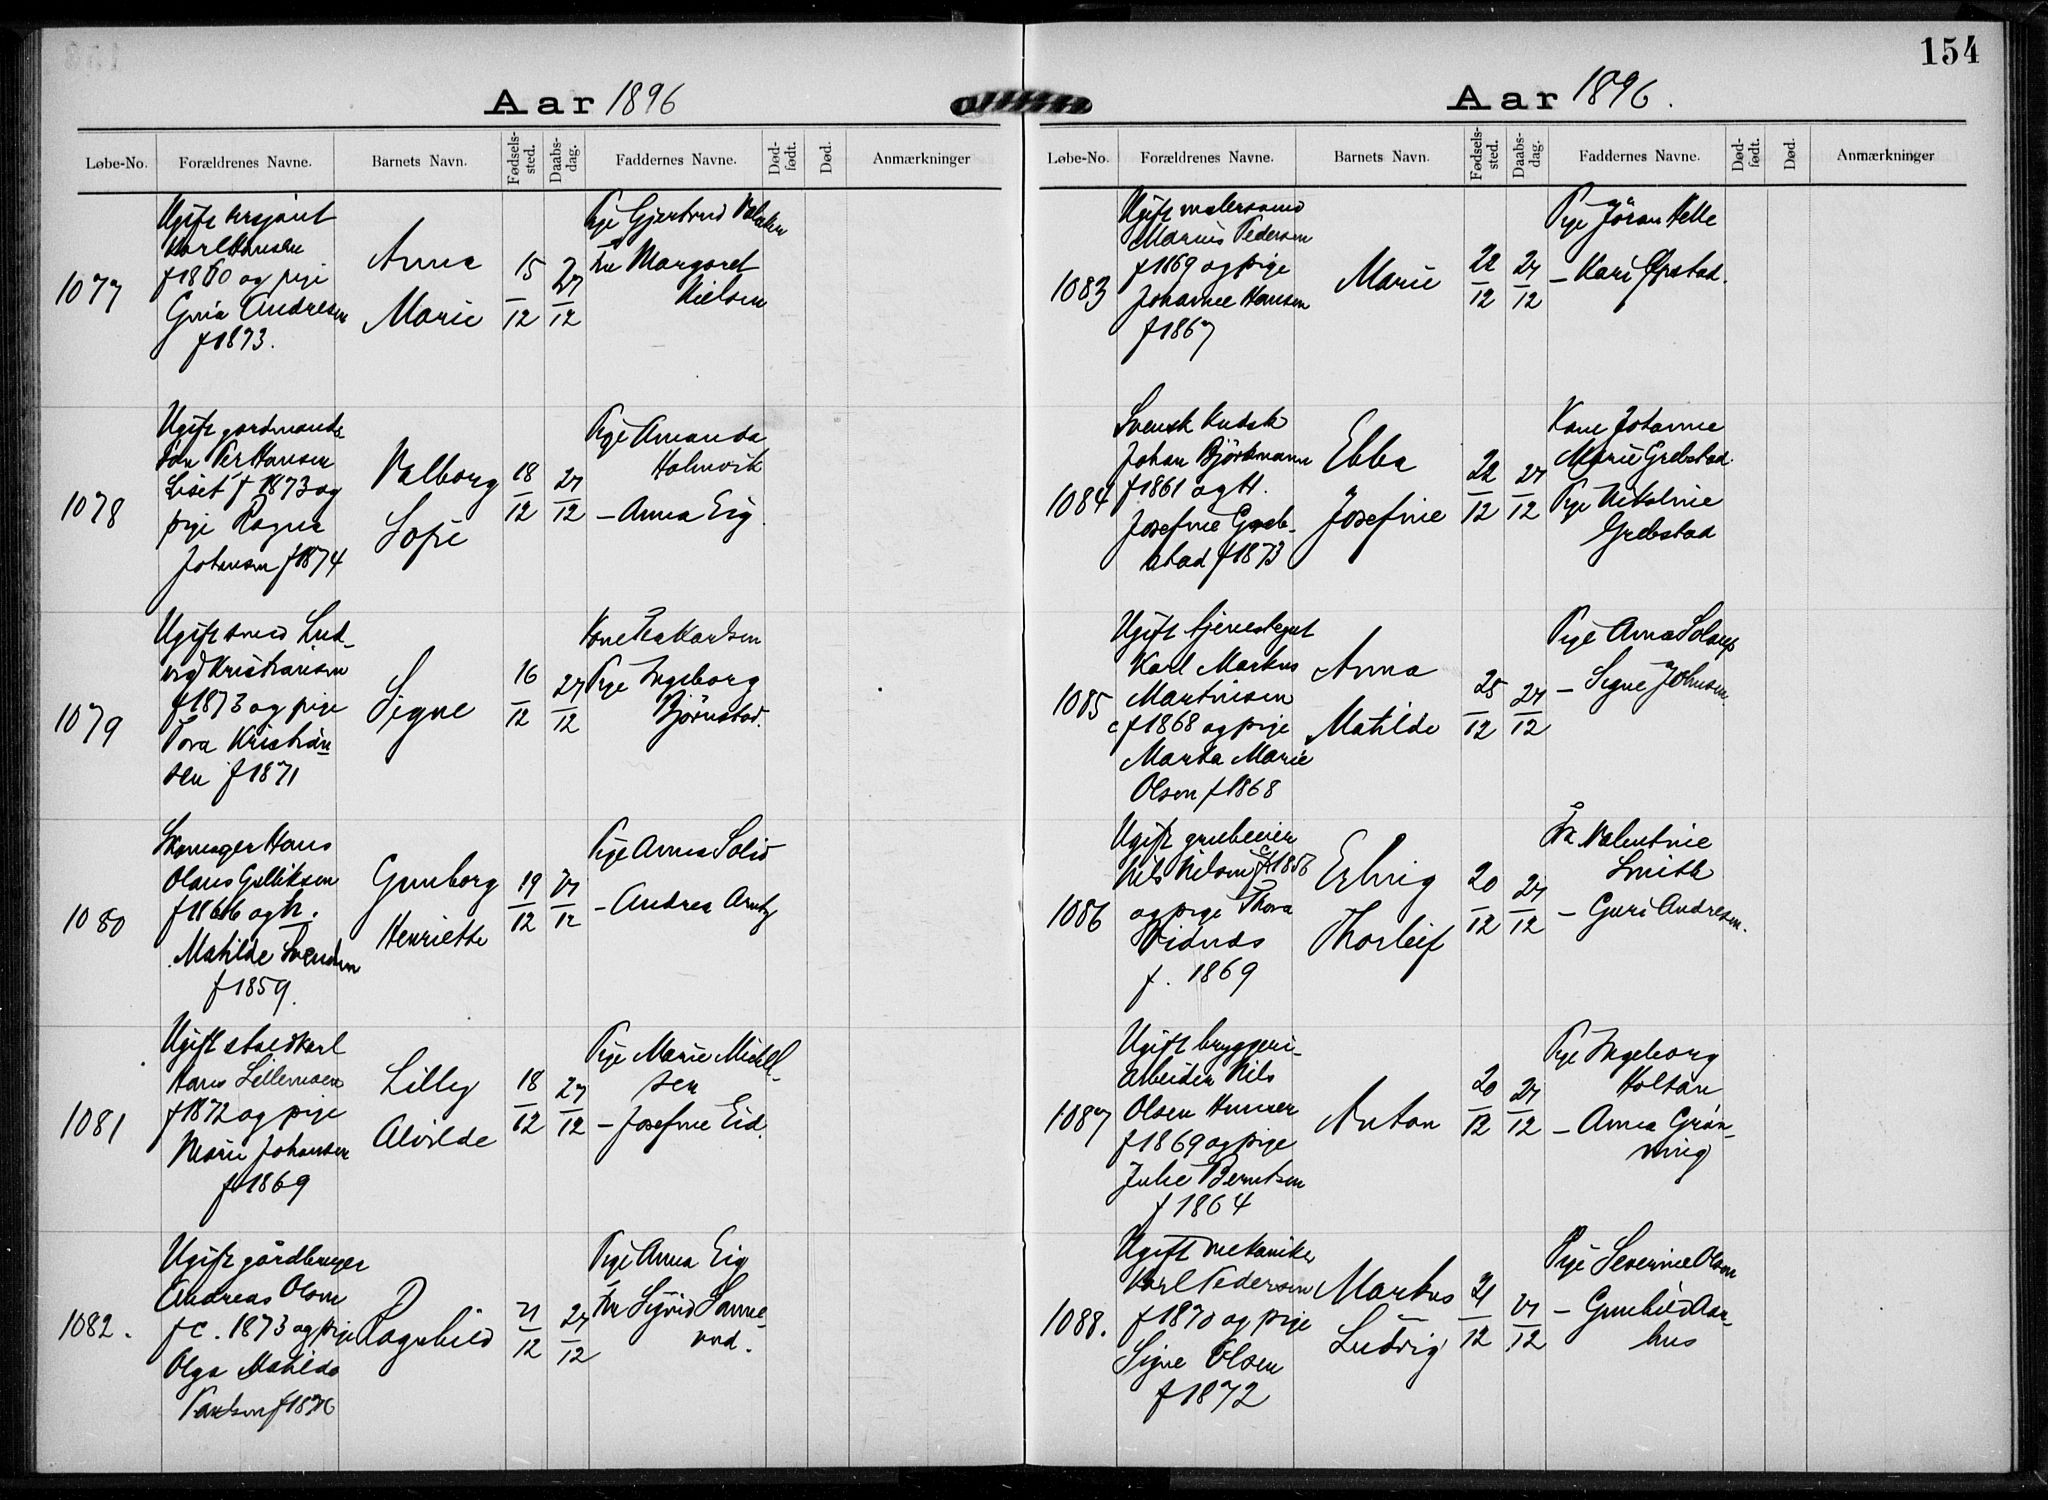 154
Aar 1896
Løbe-No. Forældrenes Navne. Barnets Navn. Fødsels-sted. Daabs-dag. Faddernes Navne. Død-født. Død. Anmærkninger
1077
Ugift sersjant
Karl Hansen
f 1870 og pige
Gina Andresen
f 1873.
Anna
Marie
15/12
27/12
Pige Gjertrud
Fru Margaret
Nielsen
1078
Ugift gardmands
søn Per Hansen
Liset f 1873 og
pige Ragna
Johansen f 1874
Valborg
Sofie
18/12
27/12
Pige Amanda
Holmvik
– Anna Eig
1079
Ugift smed Lud-
vig Kristiansen
f 1873 og pige
Tora Kristian
sen f 1871
Signe
16/12
27/12
Kone Pea Karlsen
Pige Ingeborg
Bjørnstad.
1080
Skomager Hans
Olaus Gulliksen
f 1866 og h.
Matilde Svendsen
f 1859.
Gunborg
Henriette
19/12
27/12
Pige Anna Solid
– Andrea
1081
Ugift staldkarl
Hans Lillemoen
f 1872 og pige
Marie Johansen
f 1869
Lilly
Alvilde
18/12
27/12
Pige Marie Mickel-
sen
– Josefine Eid.
1082.
Ugift gårdbruger
Andreas Olsen
f c. 1873 og pige
Olga Matilde
Paulsen f 1876
Ragnhild
21/12
27/12
Pige Anna Eig
Fru Sigrid Sanne-
rud.
Aar 1896.
Løbe-No. Forældrenes Navne. Barnets Navn. Fødsels-sted. Daabs-dag. Faddernes Navne. Død-født. Død. Anmærkninger
1083
Ugift malersvend
Marius Pedersen
f 1869 og pige
Johanne Hansen
f 1867
Marie
22/12
27/12
Pige Jöran Helle
– Kari Øpstad.
1084
Svensk kudsk
Johan Björkmann
f 1861 og H.
Josefine Greb-
stad f 1873
Ebba
Josefine
22/12
27/12
Kone Johanne
Marie Grebstad
Pige Nikoline
Grebstad
1085
Ugift tjenestegut
Karl Markus
Martinisen
c f 1868 og pige
Marta Marie
Olsen f 1868
Anna
Matilde
25/12
27/12
Pige Anna Solaug
– Signe Johnsen
1086
Ugift grubeeier
Nils Nilsen f c 1856
og pige Thora
f. 1869
Erling
Thorleif
20/12
27/12
Fr. Valentine
Smith
– Guri Andresen.
1087
Ugift bryggeri-
arbeider Nils
Olsen Hunner
f 1869 og pige
Julie Berntsen
f 1864
Anton
20/12
27/12
Pige Ingeborg
Holtan
– Anna Grøn-
ning
1088.
Ugift mekaniker
Karl Pedersen
f 1870 og pige
Signe Olsen
f 1872
Markus
Ludvig
21/12
27/12
Pige Severine Olsen
– Gunhild Aar-
hus